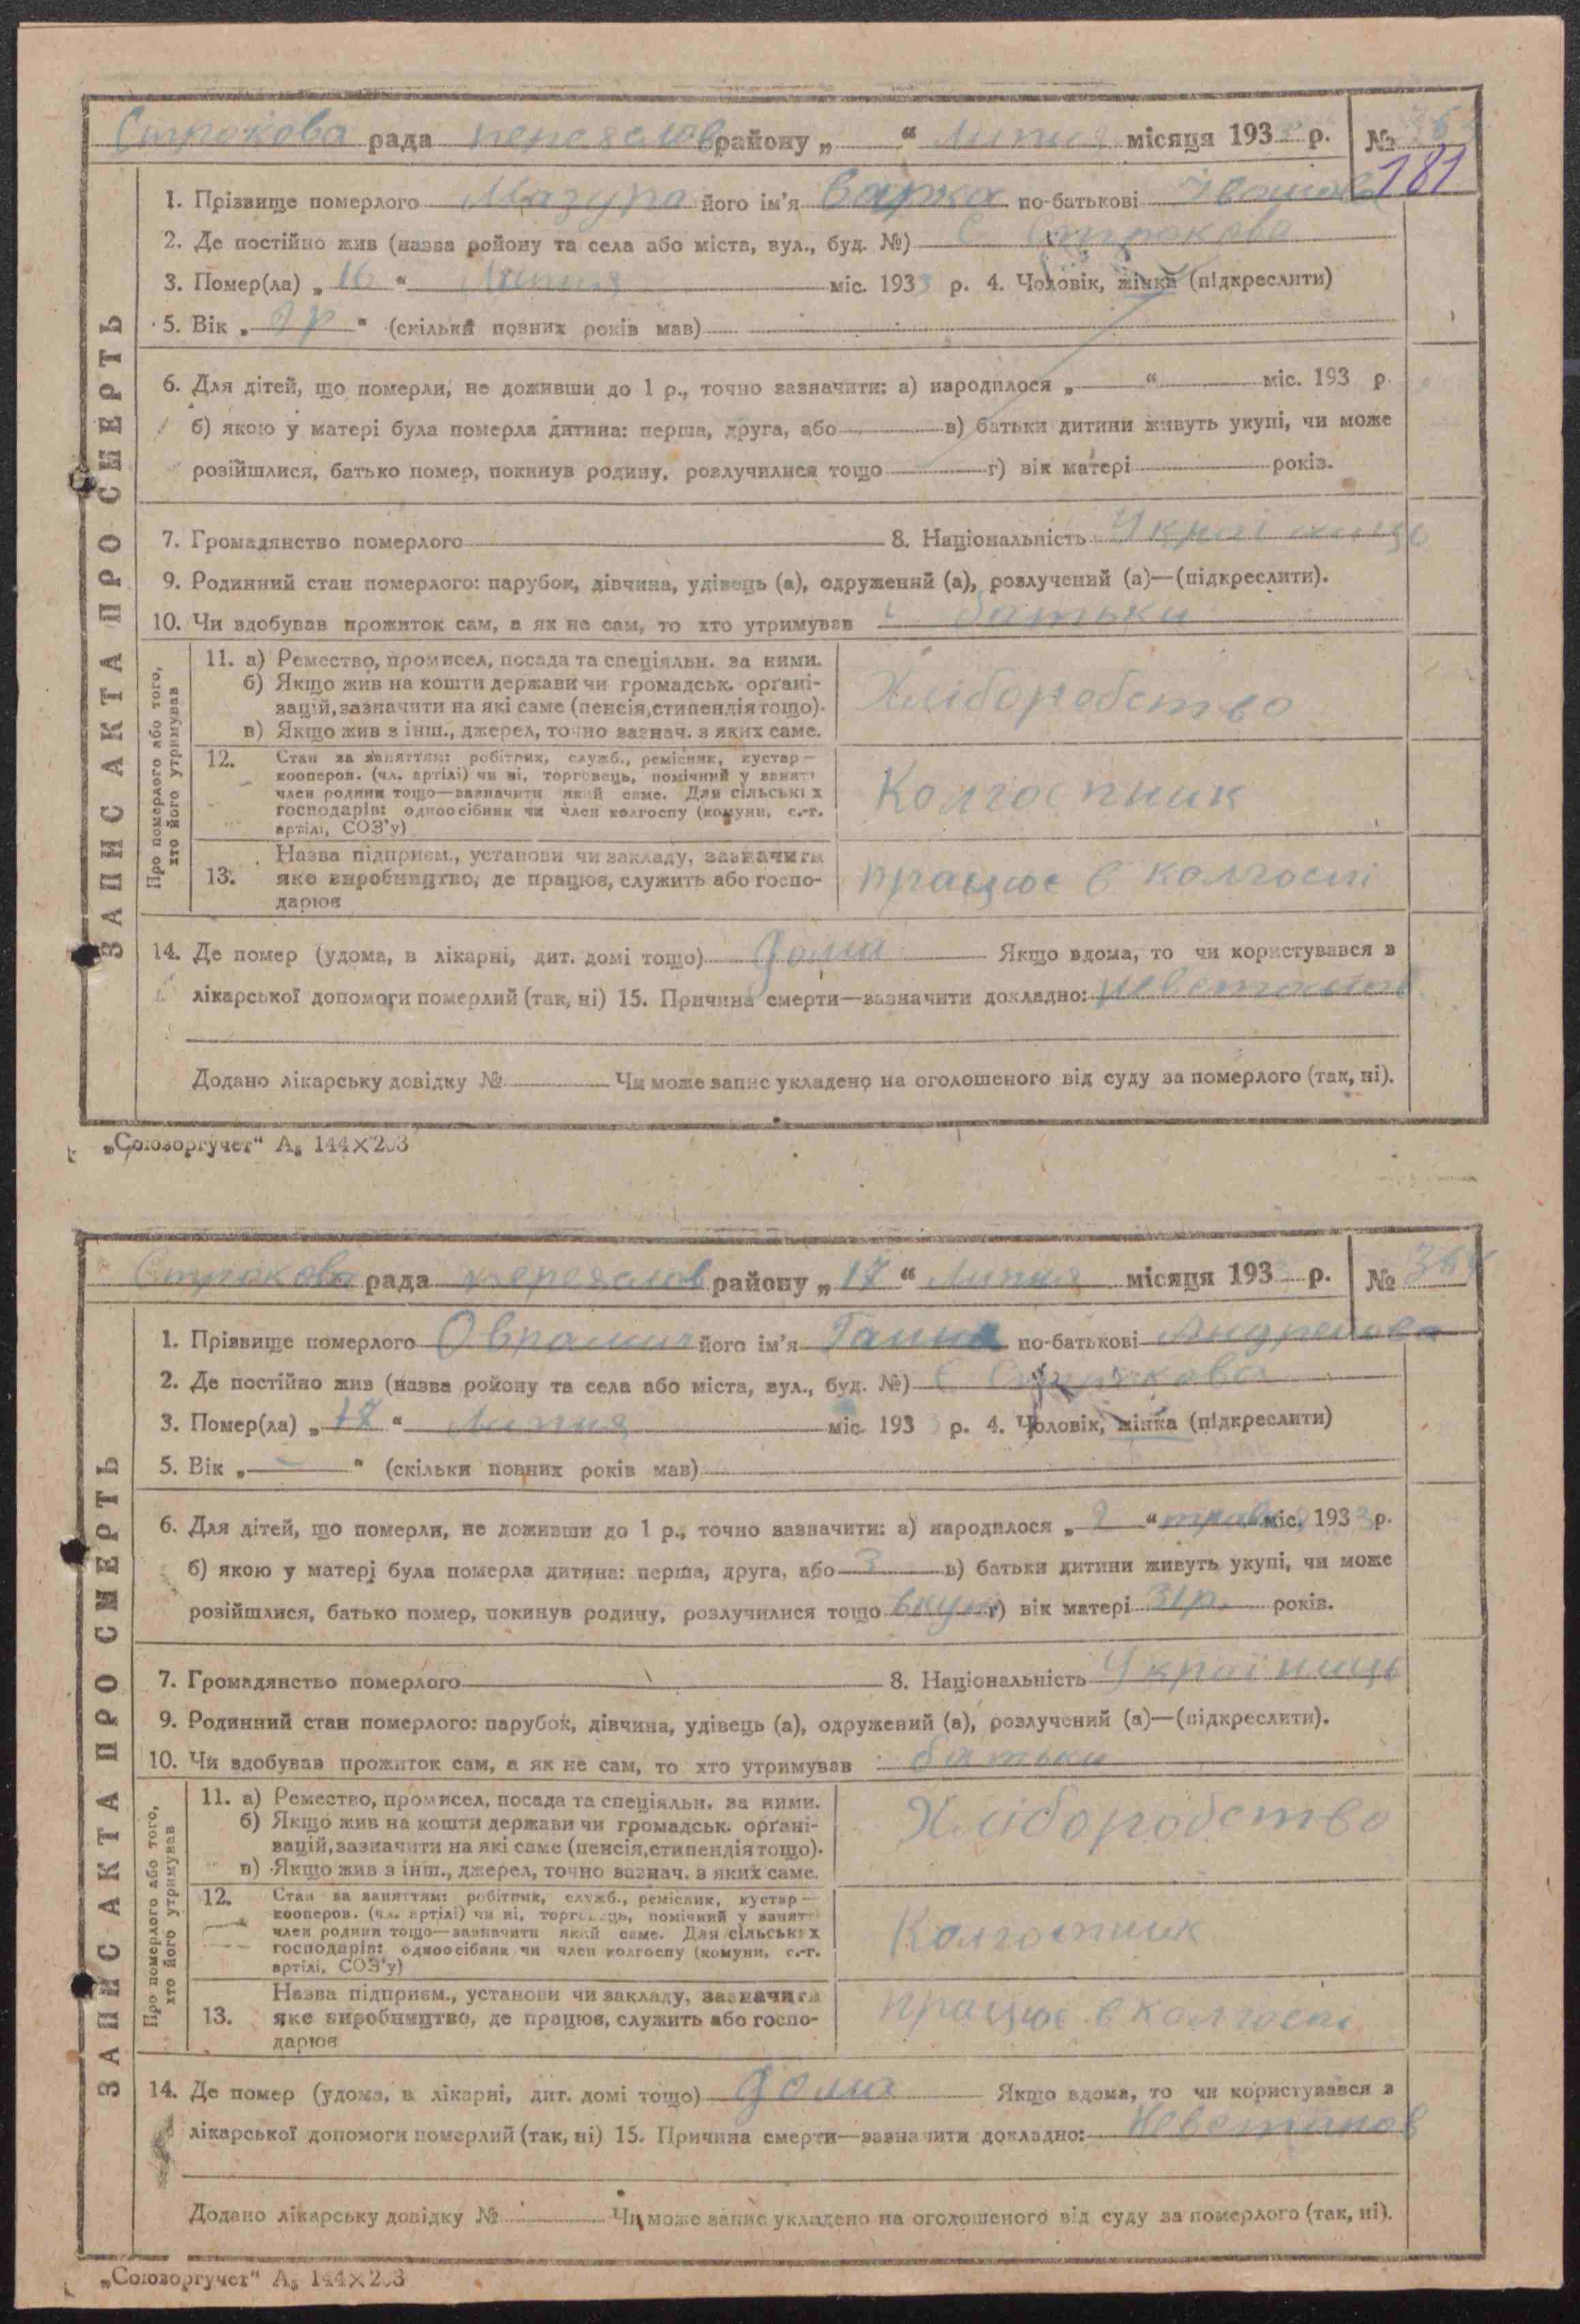 Строкова рада переяслов району „ “ Липня місяця 1933 р. № 363
181
1. Прізвище померлого Мазура його ім'я Варка по-батькові Іванова
2. Де постійно жив (назва ройону та села або міста, вул., буд. №) С Строкова
3. Помер(ла) „ 16 “ Липня міс. 1933 р. 4. Чоловік, жінка (підкреслити)
5. Вік „ “ (скільки повних років мав)
6. Для дітей, що померли, не доживши до 1 р., точно зазначити: а) народилося „ “ міс. 193 р.
б) якою у матері була померла дитина: перша, друга, або в) батьки дитини живуть укупі, чи може
розійшлися, батько помер, покинув родину, розлучилися тощо г) вік матері років.
7. Громадянство померлого 8. Національність Українець
9. Родинний стан померлого: парубок, дівчина, удівець (а), одружений (а), розлучений (а)—(підкреслити).
10. Чи здобував прожиток сам, а як не сам, то хто утримував батьки
ЗАПИС АКТА ПРО СМЕРТЬ
Про померлого або того,
хто його утримував
11. а) Ремество, промисел, посада та спеціяльн. за ними.
б) Якщо жив на кошти держави чи громадськ. орґані-
зацій, зазначити на які саме (пенсія, стипендія тощо).
в) Якщо жив з інш., джерел, точно зазнач. з яких саме.
Хліборобство
12. Стан за заняттям: робітник, служб., ремісник, кустар—
кооперов. (чл. артілі) чи ні, торговець, помічний у занятті
член родини тощо—зазначити який саме. Для сільських
господарів: одноосібник чи член колгоспу (комуни, с.-г.
артілі, СОЗ'у)
Колгоспник
13. Назва підприєм., установи чи закладу, зазначити
яке виробництво, де працює, служить або госпо-
дарює
працює в колгоспі
14. Де помер (удома, в лікарні, дит. домі тощо) дома Якщо вдома, то чи користувався з
лікарської допомоги померлий (так, ні) 15. Причина смерти—зазначити докладно: невстанов
Додано лікарську довідку № Чи може запис укладено на оголошеного від суду за померлого (так, ні).
„Союзоргучет“ А₅ 144×203
Строкова рада переяслов району „ 17 “ Липня місяця 1933 р. № 364
1. Прізвище померлого Оврамич його ім'я Ганна по-батькові Андреєва
2. Де постійно жив (назва ройону та села або міста, вул., буд. №) С Строкова
3. Помер(ла) „ 17 “ Липня міс. 1933 р. 4. Чоловік, жінка (підкреслити)
5. Вік „ — “ (скільки повних років мав)
6. Для дітей, що померли, не доживши до 1 р., точно зазначити: а) народилося „ 2 “ травня міс. 1933 р.
б) якою у матері була померла дитина: перша, друга, або 3 в) батьки дитини живуть укупі, чи може
розійшлися, батько помер, покинув родину, розлучилися тощо вкупі г) вік матері 31 р. років.
7. Громадянство померлого 8. Національність Українець
9. Родинний стан померлого: парубок, дівчина, удівець (а), одружений (а), розлучений (а)—(підкреслити).
10. Чи здобував прожиток сам, а як не сам, то хто утримував батьки
ЗАПИС АКТА ПРО СМЕРТЬ
Про померлого або того,
хто його утримував
11. а) Ремество, промисел, посада та спеціяльн. за ними.
б) Якщо жив на кошти держави чи громадськ. орґані-
зацій, зазначити на які саме (пенсія, стипендія тощо).
в) Якщо жив з інш., джерел, точно зазнач. з яких саме.
Хліборобство
12. Стан за заняттям: робітник, служб., ремісник, кустар—
кооперов. (чл. артілі) чи ні, торговець, помічний у занятті
член родини тощо—зазначити який саме. Для сільських
господарів: одноосібник чи член колгоспу (комуни, с.-г.
артілі, СОЗ'у)
Колгоспник
13. Назва підприєм., установи чи закладу, зазначити
яке виробництво, де працює, служить або госпо-
дарює
працює в колгоспі
14. Де помер (удома, в лікарні, дит. домі тощо) дома Якщо вдома, то чи користувався з
лікарської допомоги померлий (так, ні) 15. Причина смерти—зазначити докладно: Невстанов
Додано лікарську довідку № Чи може запис укладено на оголошеного від суду за померлого (так, ні).
„Союзоргучет“ А₅ 144×203